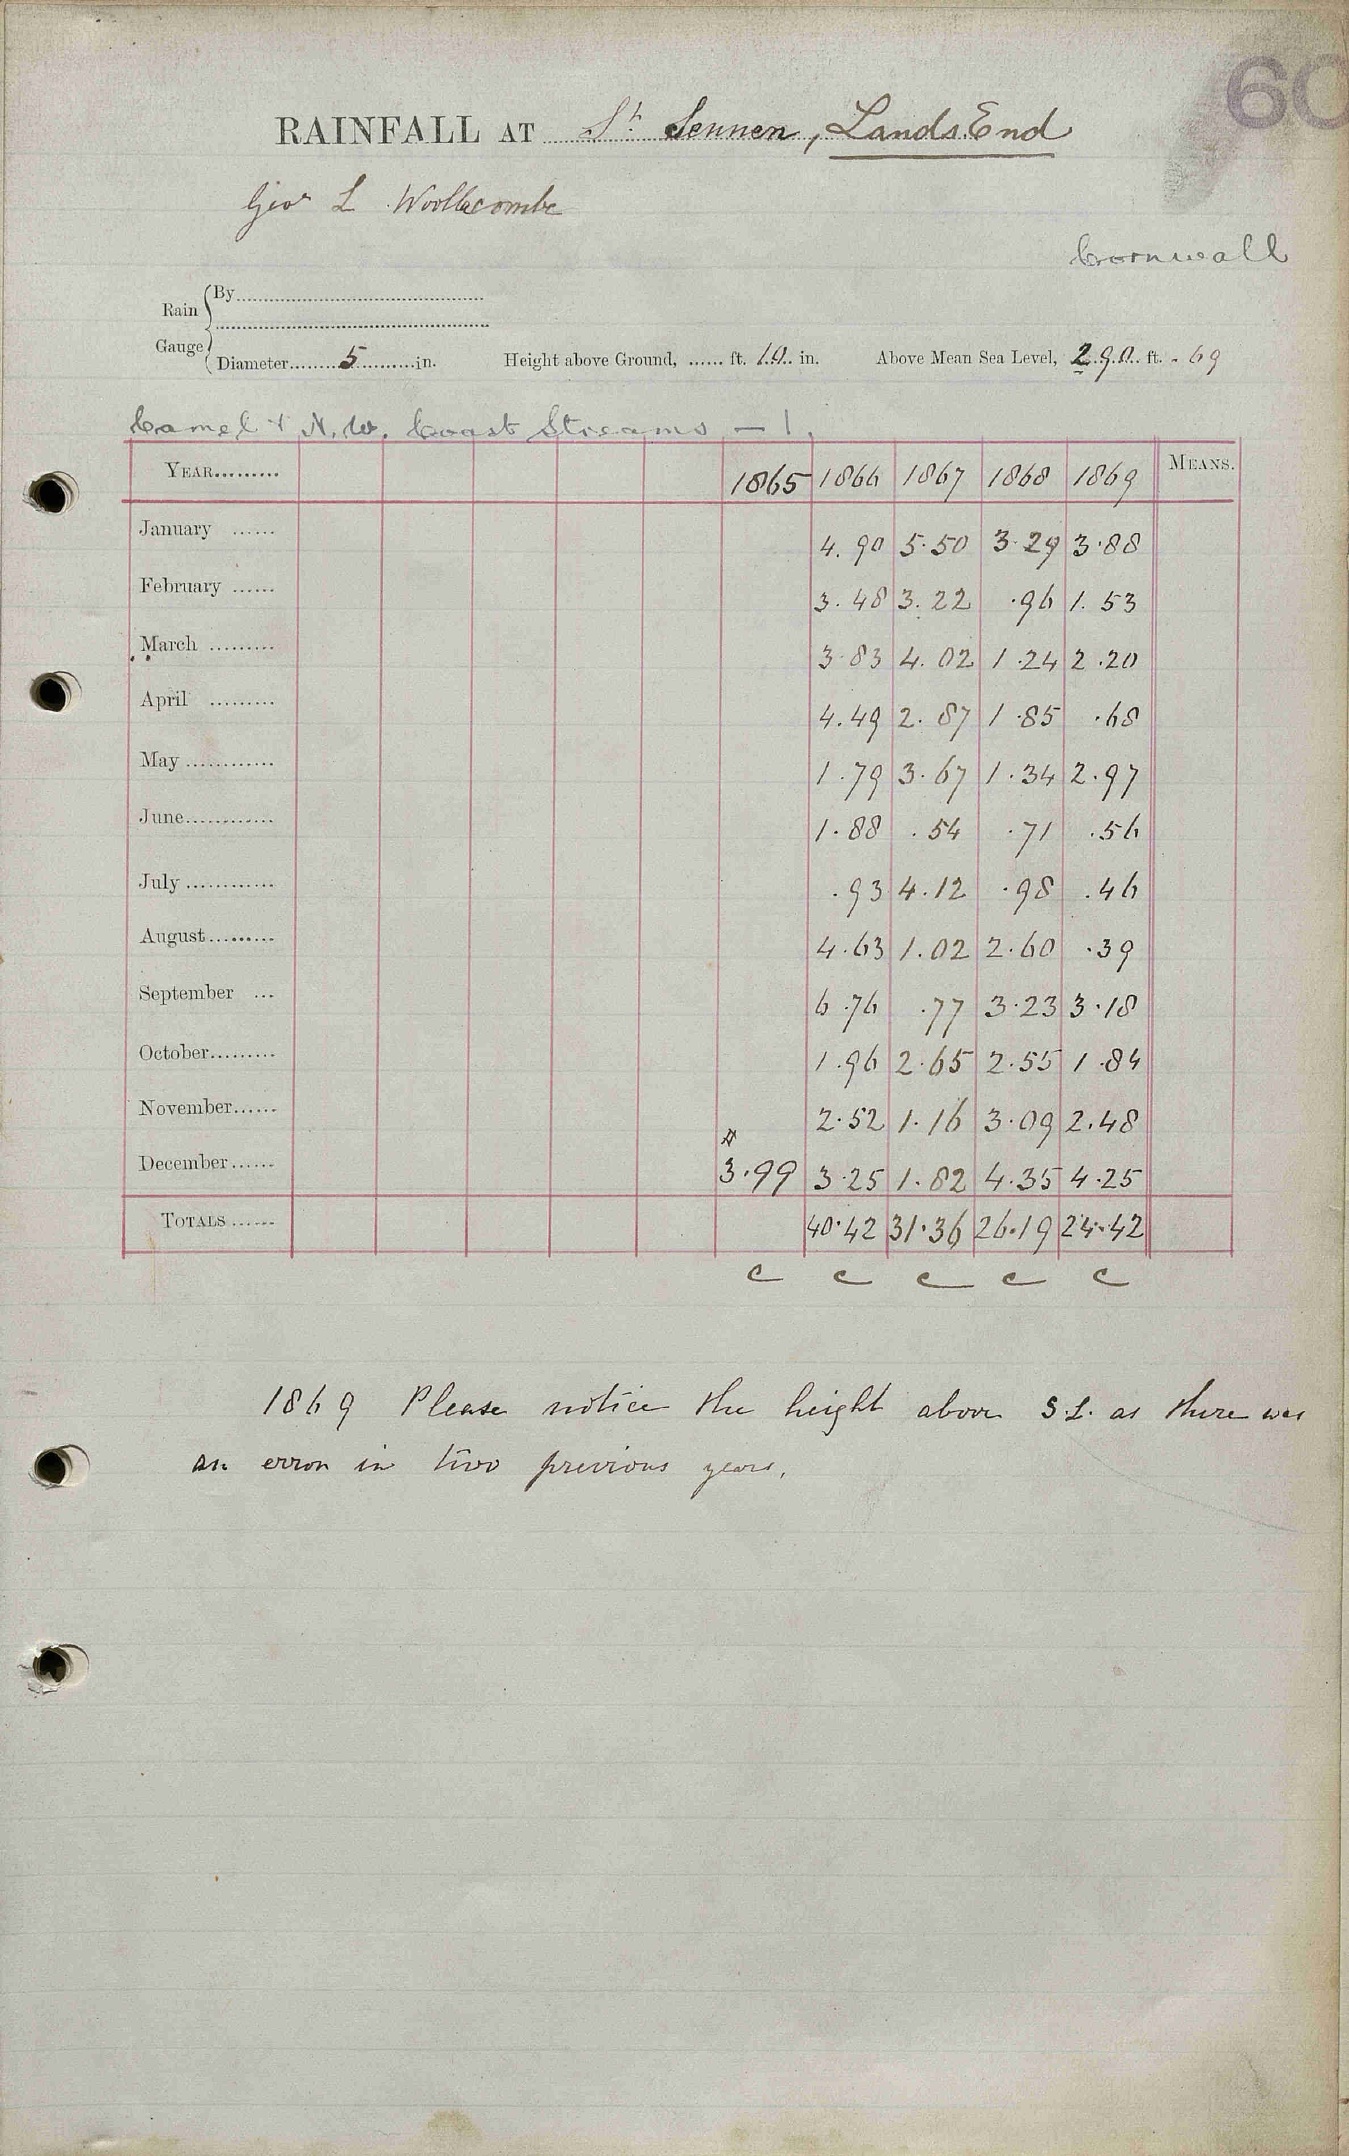 60
RAINFALL AT St. Sennen, Lands End
Geo. L Woollacombe
Cornwall
Rain Gauge { By
Diameter 5 in. Height above Ground, ...... ft. 10 in. Above Mean Sea Level, 290 ft. - 69
Camel & N.W. Coast Streams — 1.
YEAR......... 1865 1866 1867 1868 1869 MEANS.
January ...... 4.90 5.50 3.29 3.88
February ...... 3.48 3.22 .96 1.53
March ......... 3.83 4.02 1.24 2.20
April ......... 4.49 2.87 1.85 .68
May ............ 1.79 3.67 1.34 2.97
June............ 1.88 .54 .71 .56
July ............ .93 4.12 .98 .46
August......... 4.63 1.02 2.60 .39
September ... 6.76 .77 3.23 3.18
October......... 1.96 2.65 2.55 1.84
November...... 2.52 1.16 3.09 2.48
December...... 3.99 3.25 1.82 4.35 4.25
TOTALS ...... 40.42 31.36 26.19 24.42
c c c c c
1869 Please notice the height above S.L. as there was
an error in two previous years.